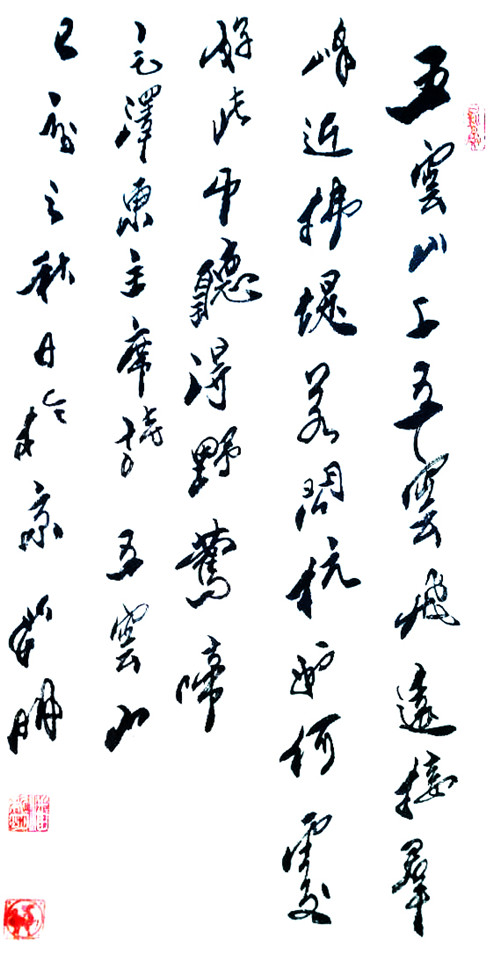 五雲山上五雲飛遠接羣
峰近拂堤若問杭州何處
好此中聽得野鶯啼
毛澤東主席詩 五雲山
己亥之秋日於京 明